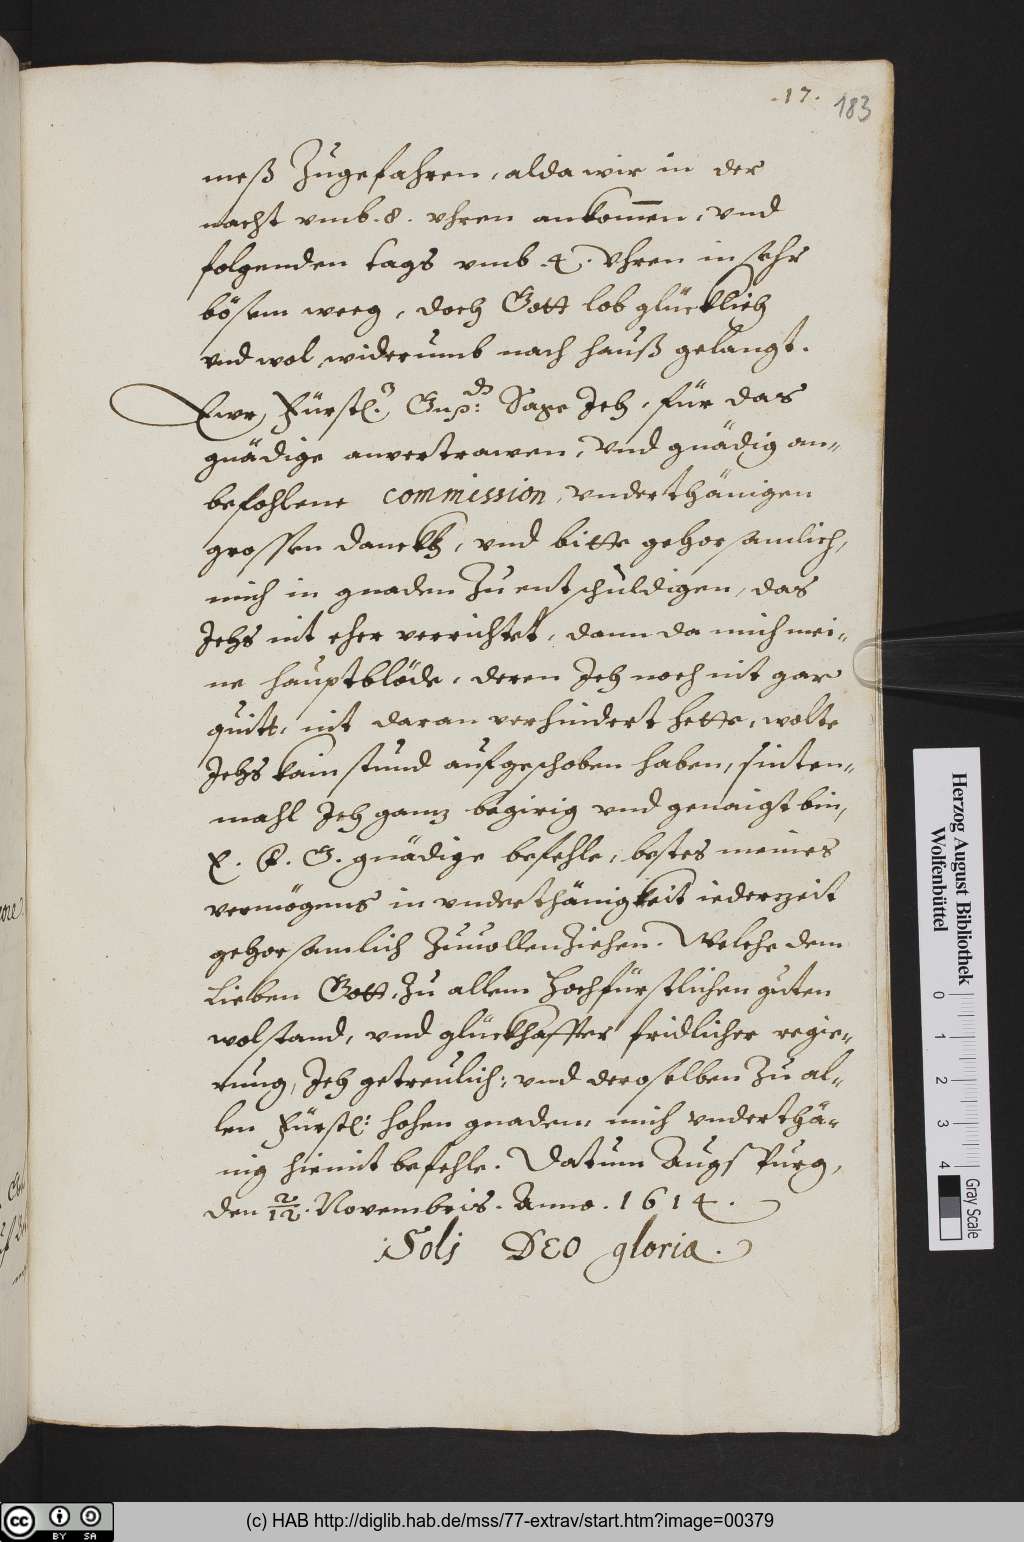 .17.
183
meß Zugefahren, alda wir in der
nacht vmb .8. vhren ankom̄en, vnd
folgenden tags vmb .4. Vhren in sehr
bösem weeg, doch Gott lob glücklich
vnd wol widerumb nach hauß gelangt.
Ewr Fürstl: Gnd: Sage Ich, für das
gnädige anvertrawen, vnd gnädig an-
befohlene commission, vnderthänigen
grossen danckh, vnd bitte gehorsamlich,
mich in gnaden Zu entschuldigen, das
Ichs nit eher verrichtet, dann da mich mei-
ne hauptblöde, deren Ich noch nit gar
quitt, nit daran verhindert hette, wolte
Ichs kain stund aufgeschoben haben, sinten-
mahl Ich ganz begirig vnd genaigt bin,
E. F. G. gnädige befehle, bestes meines
vermögens in vnderthänigkeit iederzeit
gehorsamlich Zuuollenziehen. Welche dem
Lieben Gott, Zu allem hochfürstlichen guten
wolstand, vnd glückhaffter fridlicher regie-
rung, Ich getreulich: vnd deroselben Zu al-
len Fürstl: hohen gnaden, mich vnderthä-
nig hiemit befehle. Datum Augspurg,
den 2/12. Novembris. Anno. 1614.
Soli DEO gloria.
Herzog August Bibliothek
Wolfenbüttel
0 1 2 3 4
Gray Scale
cc BY SA
(c) HAB http://diglib.hab.de/mss/77-extrav/start.htm?image=00379